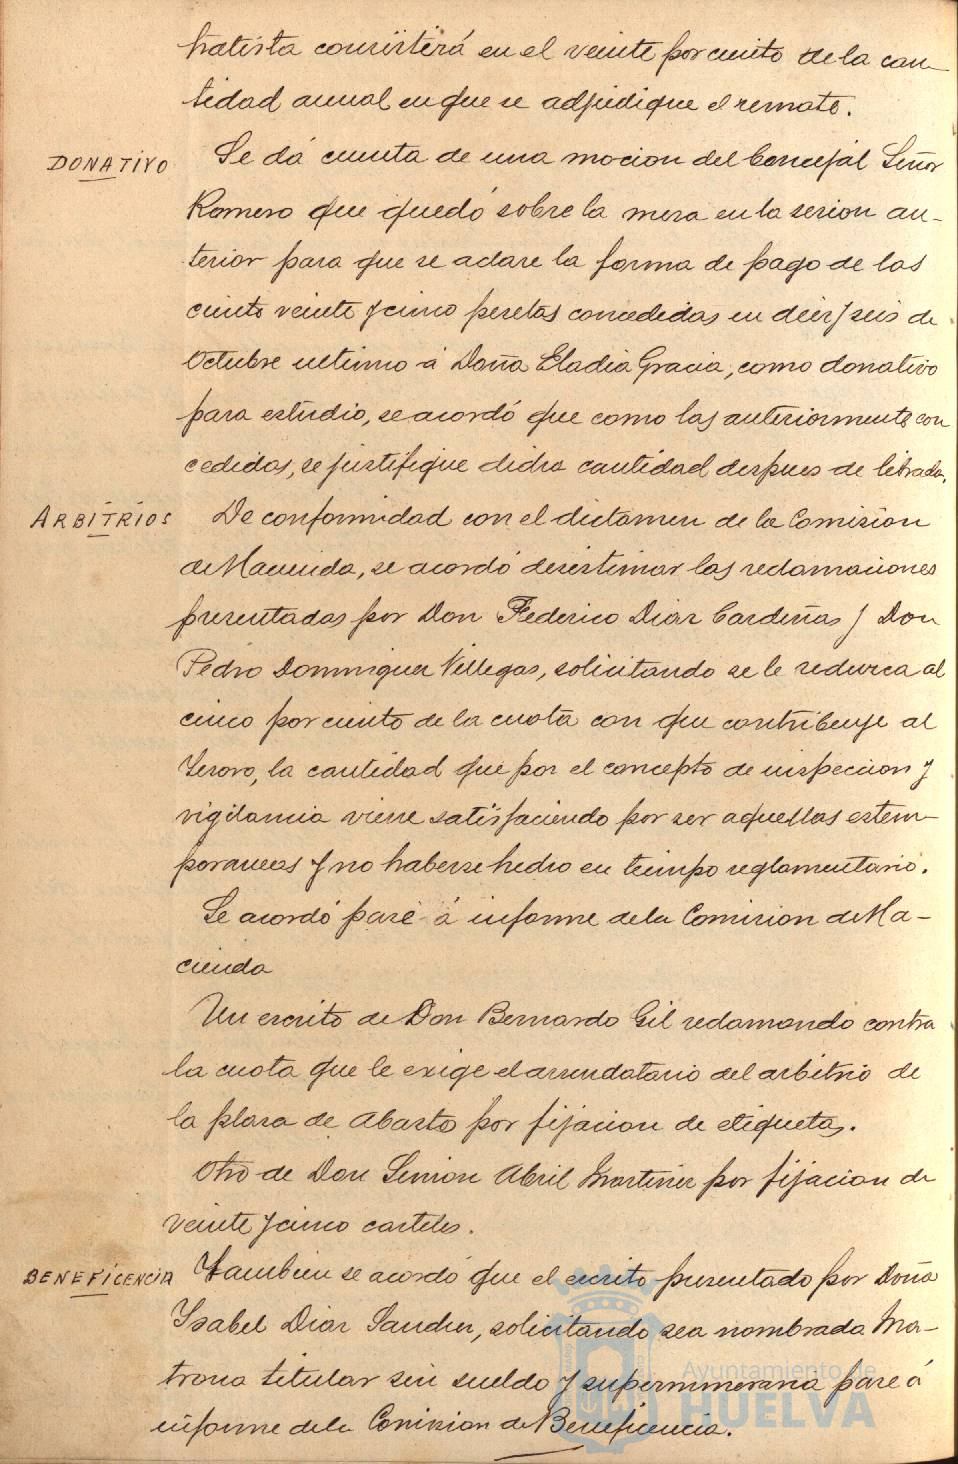 tratista consistirá en el veinte por ciento de la can-
tidad anual en que se adjudique el remate.
DONATIVO
Se dá cuenta de una mocion del Concejál Señor
Romero que quedó sobre la mesa en la sesion an-
terior para que se aclare la forma de pago de las
ciento veinte y cinco pesetas concedidas en diez y seis de
Octubre ultimo á Doña Eladia Gracia, como donativo
para estudio, se acordó que como las anteriormente con
cedidas, se justifique dicha cantidad despues de librada.
ARBITRIOS
De conformidad con el dictamen de la Comision
de Hacienda, se acordó desestimar las reclamaciones
presentadas por Don Federico Diaz Cardeñas y Don
Pedro Dominguez Villegas, solicitando se le reduzca al
cinco por ciento de la cuota con que contribuye al
Tesoro, la cantidad que por el concepto de inspeccion y
vigilancia viene satisfaciendo por ser aquellas extem-
poraneas y no haberse hecho en tiempo reglamentario.
Se acordó pase á informe de la Comision de Ha-
cienda
Un escrito de Don Bernardo Gil reclamando contra
la cuota que le exige el arrendatario del arbitrio de
la plaza de Abasto por fijacion de etiquetas.
Otro de Don Simon Abril Martinez por fijacion de
veinte y cinco carteles.
BENEFICENCIA
Tambien se acordó que el escrito presentado por Doña
Isabel Diaz Sanchez, solicitando sea nombrada Ma-
trona titular sin sueldo y supernumeraria pase á
informe de la Comision de Beneficencia.
Ayuntamiento de
HUELVA